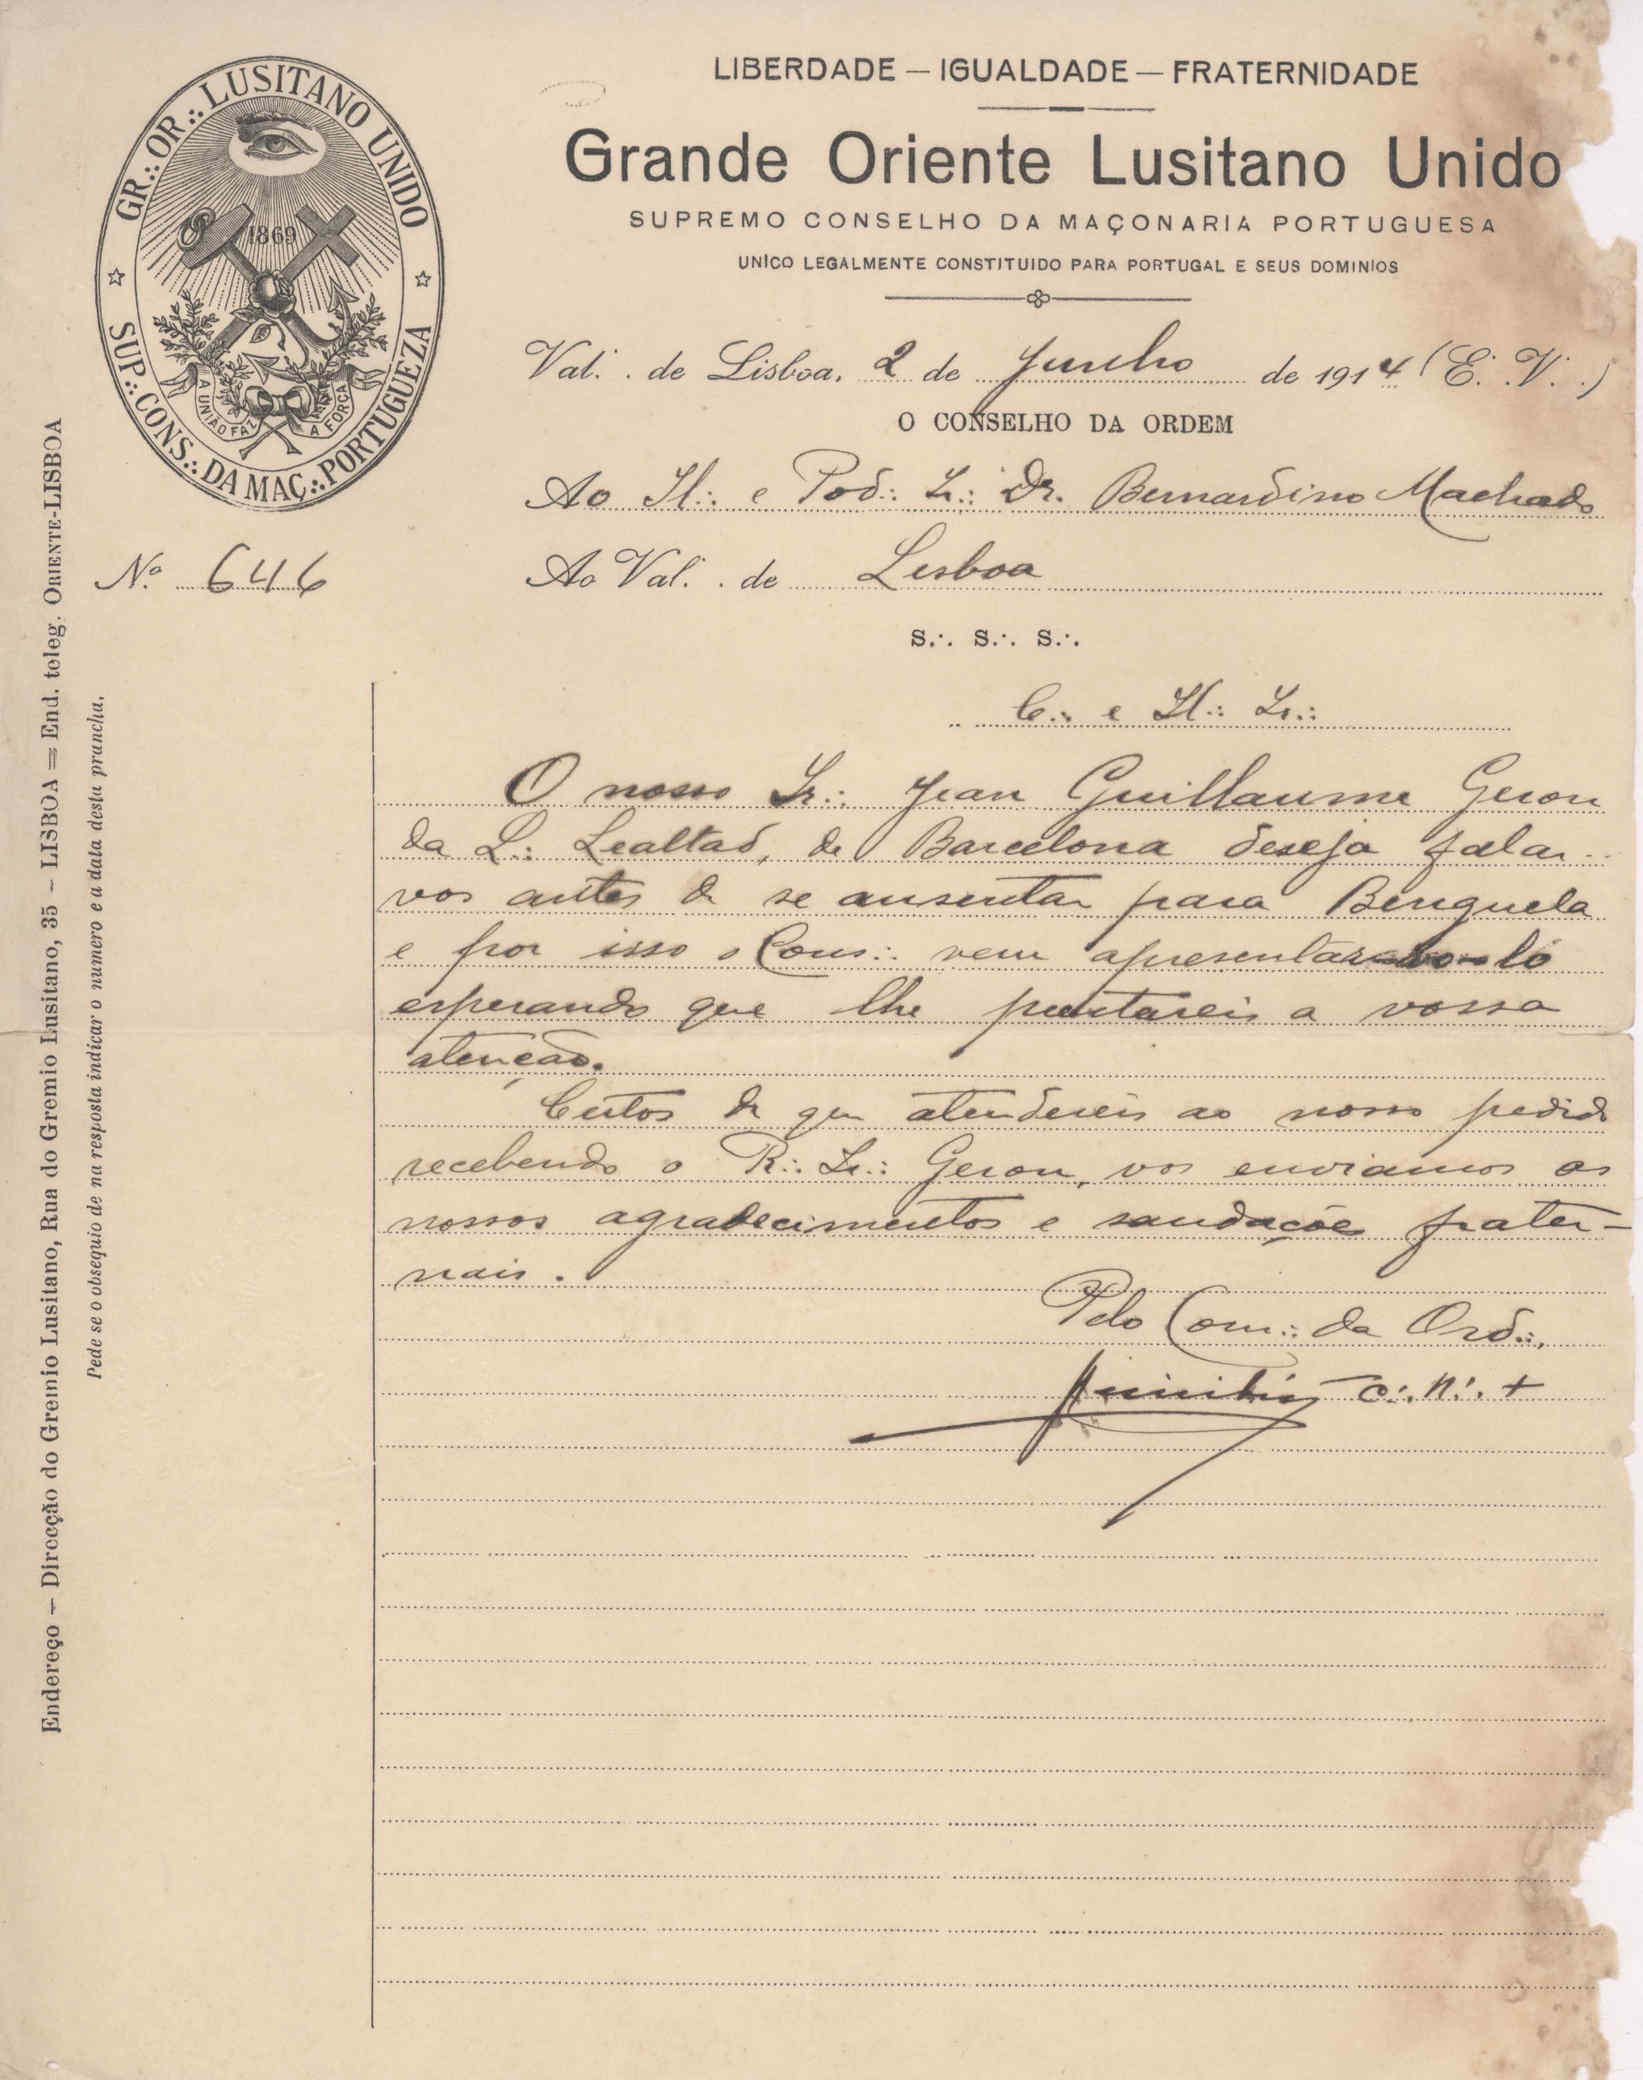 LIBERDADE — IGUALDADE — FRATERNIDADE
Grande Oriente Lusitano Unido
SUPREMO CONSELHO DA MAÇONARIA PORTUGUESA
UNICO LEGALMENTE CONSTITUIDO PARA PORTUGAL E SEUS DOMINIOS
GR∴ OR∴ LUSITANO UNIDO
SUP∴ CONS∴ DA MAÇ∴ PORTUGUEZA
1869
A UNIÃO FAZ A FORÇA
Val∴ de Lisboa, 2 de Junho de 1914 (E∴ V∴)
O CONSELHO DA ORDEM
Ao Il∴ e Pod∴ Ir∴ Dr. Bernardino Machado
Nº 646
Ao Val∴ de Lisboa
S∴ S∴ S∴
C∴ e Il∴ Ir∴
O nosso Ir∴ Jean Guillaume Geron
da L∴ Lealtad, de Barcelona deseja falar-
vos antes de se ausentar para Benguela
e por isso o Cons∴ vem apresentar-vo-lo
esperando que lhe prestareis a vossa
atenção.
Certos de que atendereis ao nosso pedido
recebendo o R∴ Ir∴ Geron, vos enviamos os
nossos agradecimentos e saudações frater-
nais.
Pelo Con∴ da Ord∴,
C∴ N∴ +
Endereço — Direcção do Gremio Lusitano, Rua do Gremio Lusitano, 35 — LISBOA = End. teleg. ORIENTE-LISBOA
Pede se o obsequio de na resposta indicar o numero e a data desta prancha.